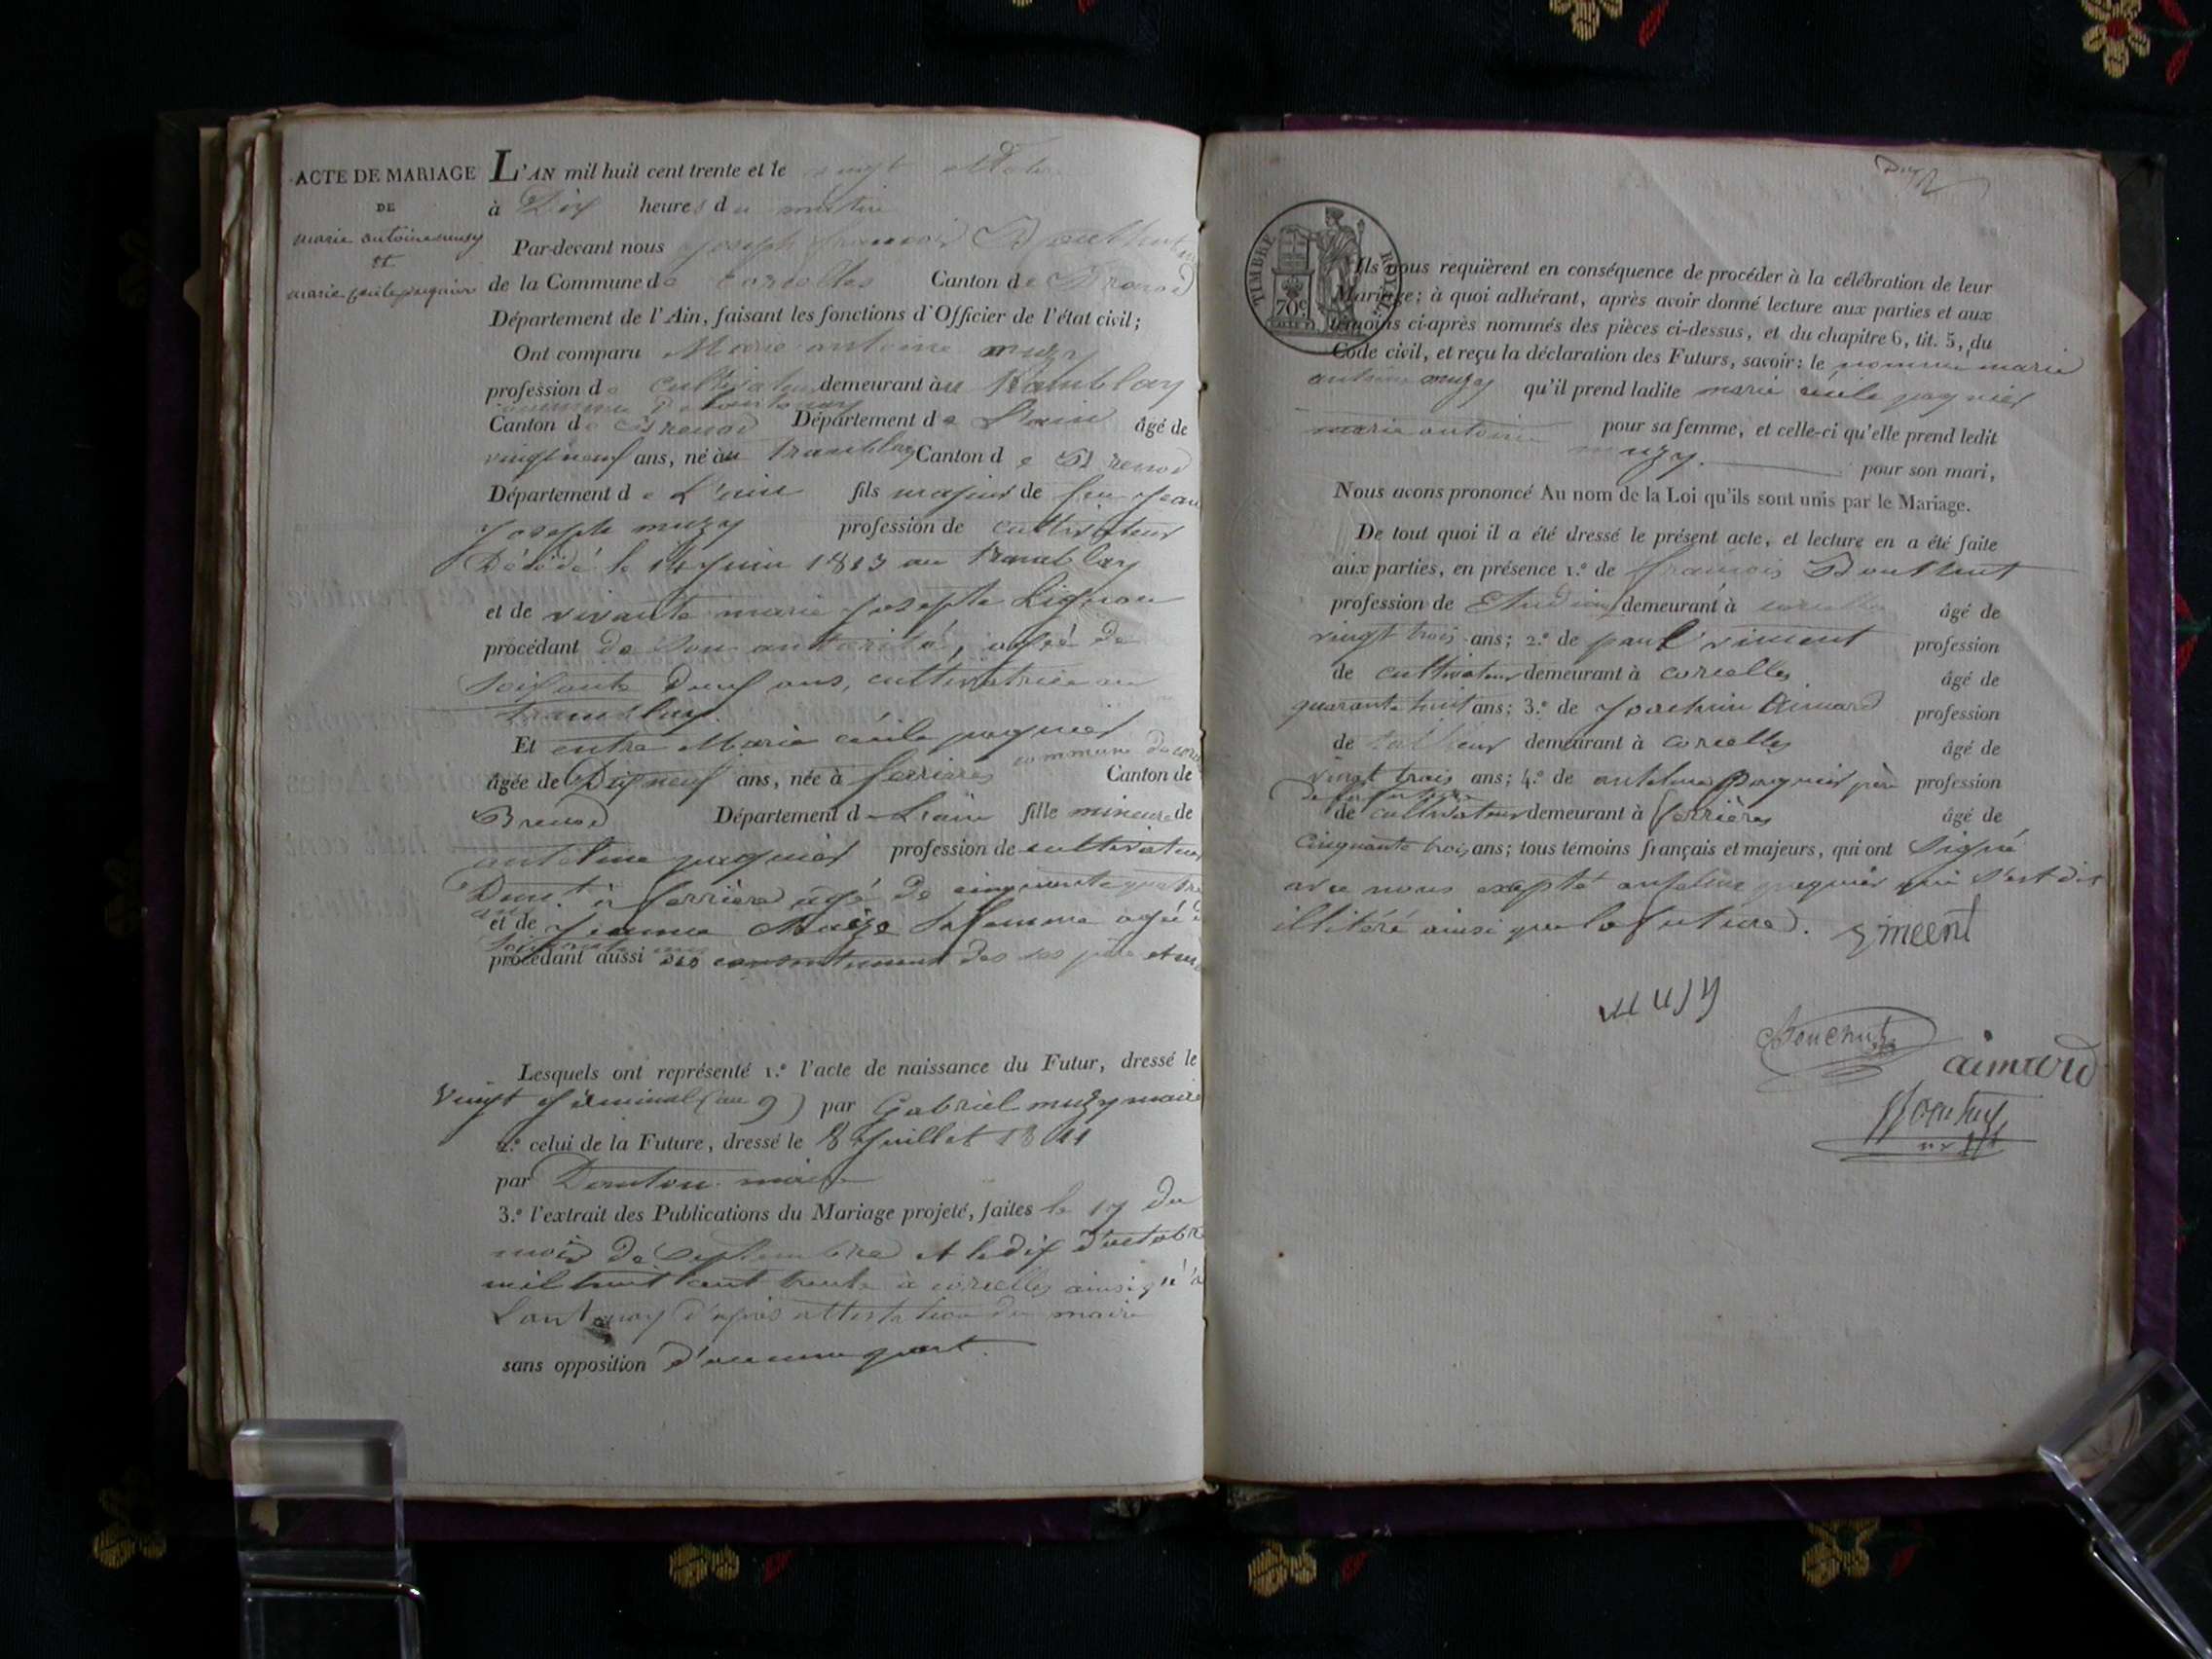 ACTE DE MARIAGE
DE
marie antoine muzy
et
marie cécile paquier
L'AN mil huit cent trente et le vingt
à Dix heures du matin
Par-devant nous Joseph françois Bouthut
de la Commune de Corcelles Canton de Brenod
Département de l'Ain, faisant les fonctions d'Officier de l'état civil;
Ont comparu Marie antoine muzy
profession de Cultivateur demeurant au Tramblay
commune De Lantenay
Canton de Brenod Département de L'ain âgé de
vingt neuf ans, né au tramblay Canton de Brenod
Département de L'ain fils majeur de feu Jean
Joseph muzy profession de cultivateur
Décédé le 14 juin 1813 au tramblay
et de vivante marie Josephte
procédant de son autorité, agée de
soixante Deux ans, cultivatrice au
tramblay.
Et entre Marie cécile paquier
âgée de Dix neuf ans, née à ferrières commune de Canton de
Brenod Département de L'ain fille mineure de
antelme paquier profession de cultivateur
Dem.t à ferrières agé de cinquante quatre
ans
et de Jeanne sa femme agée
soixante ans
procédant aussi du consentement des ses père et
Lesquels ont représenté 1.º l'acte de naissance du Futur, dressé le
vingt germinal (an 9) par Gabriel muzy maire
2.º celui de la Future, dressé le 8 Juillet 1811
par maire
3.º l'extrait des Publications du Mariage projeté, faites le 19 du
mois de Septembre et le dix d'octobre
mil huit cent trente à corcelles ainsi qu'à
Lantenay d'après attestation du maire
sans opposition d'aucune part.
TIMBRE ROYAL
70c.
Ils nous requièrent en conséquence de procéder à la célébration de leur
Mariage; à quoi adhérant, après avoir donné lecture aux parties et aux
témoins ci-après nommés des pièces ci-dessus, et du chapitre 6, tit. 5, du
Code civil, et reçu la déclaration des Futurs, savoir: le nommé marie
antoine muzy qu'il prend ladite marie cécile paquier
pour sa femme, et celle-ci qu'elle prend ledit
marie antoine muzy pour son mari,
Nous avons prononcé Au nom de la Loi qu'ils sont unis par le Mariage.
De tout quoi il a été dressé le présent acte, et lecture en a été faite
aux parties, en présence 1.º de françois Bouthut
profession de Etudiant demeurant à corcelles âgé de
vingt trois ans; 2.º de paul vincent profession
de cultivateur demeurant à corcelles âgé de
quarante huit ans; 3.º de Joachim Aimard profession
de tailleur demeurant à corcelles âgé de
vingt trois ans; 4.º de antelme paquier père profession
de la future
de cultivateur demeurant à ferrières âgé de
Cinquante trois ans; tous témoins français et majeurs, qui ont signé
avec nous excepté antelme paquier qui s'est dit
illitéré ainsi que la future.
vincent
MUSY
aimard